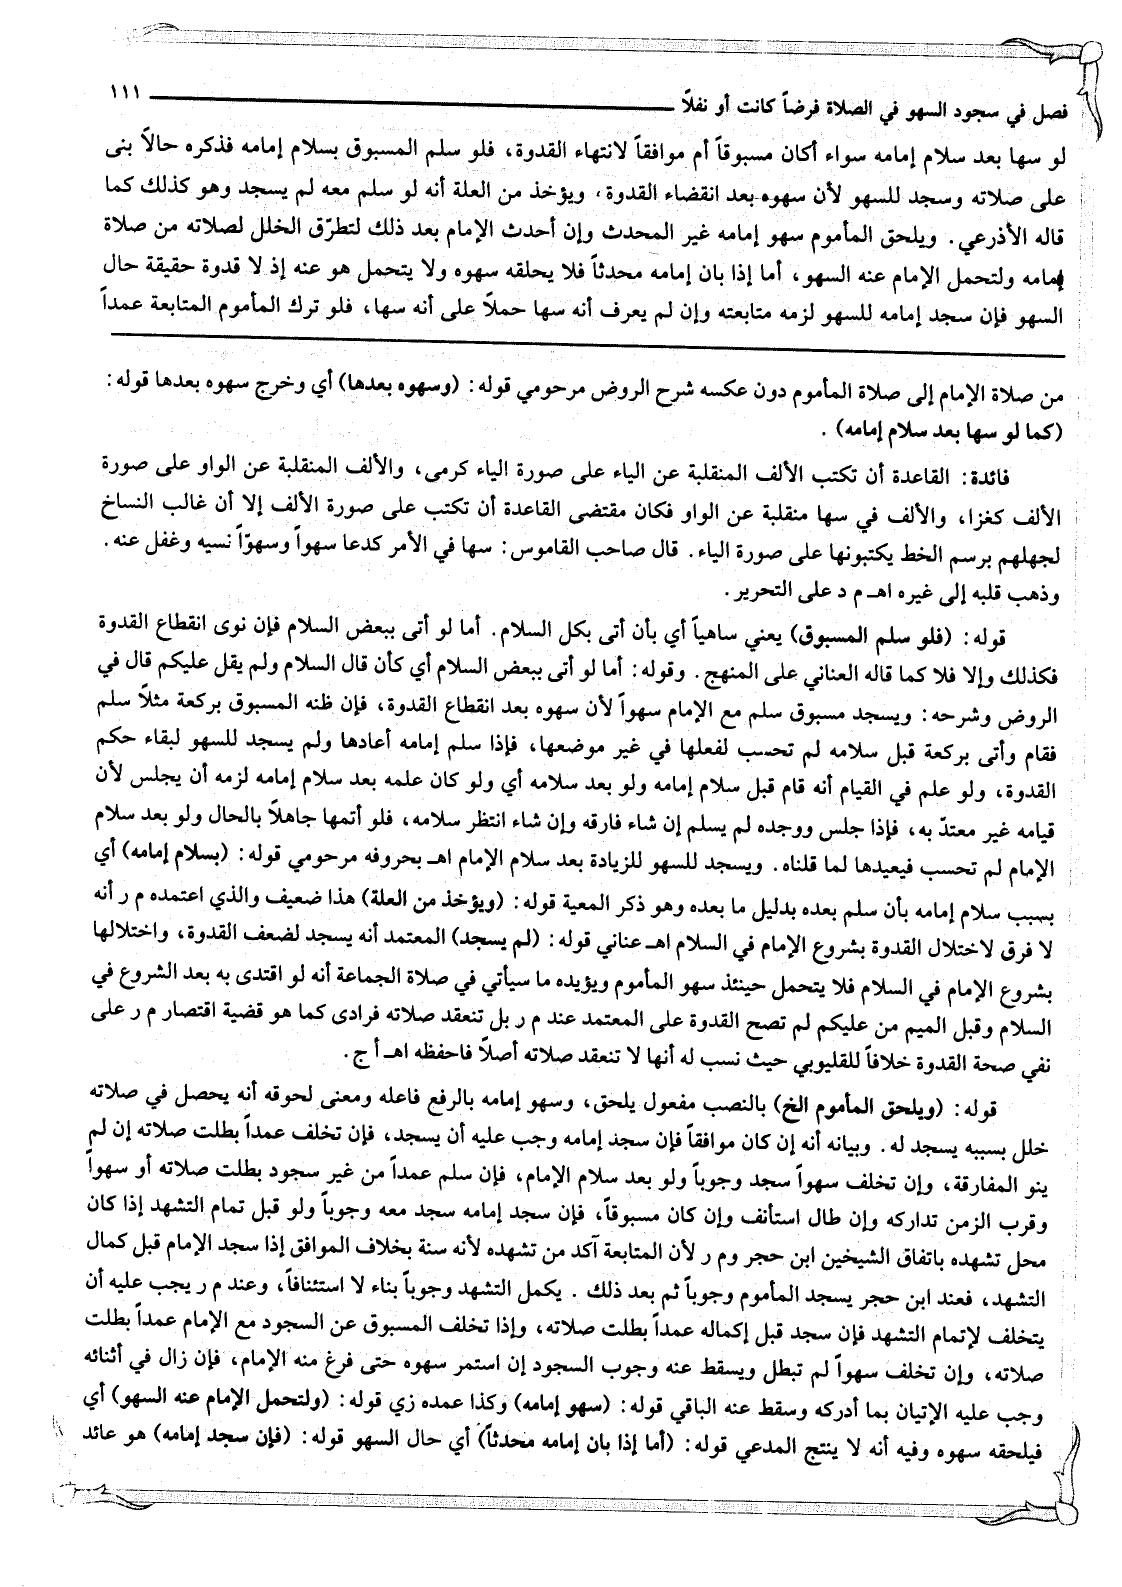 فصل في سجود السهو في الصلاة فرضاً كانت أو نفلاً ١١١
لو سها بعد سلام إمامه سواء أكان مسبوقاً أم موافقاً لانتهاء القدوة، فلو سلم المسبوق بسلام إمامه فذكره حالاً بنى
على صلاته وسجد للسهو لأن سهوه بعد انقضاء القدوة، ويؤخذ من العلة أنه لو سلم معه لم يسجد وهو كذلك كما
قاله الأذرعي. ويلحق المأموم سهو إمامه غير المحدث وإن أحدث الإمام بعد ذلك لتطرّق الخلل لصلاته من صلاة
إمامه ولتحمل الإمام عنه السهو، أما إذا بان إمامه محدثاً فلا يحلقه سهوه ولا يتحمل هو عنه إذ لا قدوة حقيقة حال
السهو فإن سجد إمامه للسهو لزمه متابعته وإن لم يعرف أنه سها حملاً على أنه سها، فلو ترك المأموم المتابعة عمداً
من صلاة الإمام إلى صلاة المأموم دون عكسه شرح الروض مرحومي قوله: (وسهوه بعدها) أي وخرج سهوه بعدها قوله:
(كما لو سها بعد سلام إمامه) .
فائدة: القاعدة أن تكتب الألف المنقلبة عن الياء على صورة الياء كرمى، والألف المنقلبة عن الواو على صورة
الألف كغزا، والألف في سها منقلبة عن الواو فكان مقتضى القاعدة أن تكتب على صورة الألف إلا أن غالب النساخ
لجهلهم برسم الخط يكتبونها على صورة الياء. قال صاحب القاموس: سها في الأمر كدعا سهواً وسهوّا نسيه وغفل عنه.
وذهب قلبه إلى غيره اهـ م د على التحرير.
قوله: (فلو سلم المسبوق) يعني ساهياً أي بأن أتى بكل السلام. أما لو أتى ببعض السلام فإن نوى انقطاع القدوة
فكذلك وإلا فلا كما قاله العناني على المنهج. وقوله: أما لو أتى ببعض السلام أي كأن قال السلام ولم يقل عليكم قال في
الروض وشرحه: ويسجد مسبوق سلم مع الإمام سهواً لأن سهوه بعد انقطاع القدوة، فإن ظنه المسبوق بركعة مثلاً سلم
فقام وأتى بركعة قبل سلامه لم تحسب لفعلها في غير موضعها، فإذا سلم إمامه أعادها ولم يسجد للسهو لبقاء حكم
القدوة، ولو علم في القيام أنه قام قبل سلام إمامه ولو بعد سلامه أي ولو كان علمه بعد سلام إمامه لزمه أن يجلس لأن
قيامه غير معتدّ به، فإذا جلس ووجده لم يسلم إن شاء فارقه وإن شاء انتظر سلامه، فلو أتمها جاهلاً بالحال ولو بعد سلام
الإمام لم تحسب فيعيدها لما قلناه. ويسجد للسهو للزيادة بعد سلام الإمام اهـ بحروفه مرحومي قوله: (بسلام إمامه) أي
بسبب سلام إمامه بأن سلم بعده بدليل ما بعده وهو ذكر المعية قوله: (ويؤخذ من العلة) هذا ضعيف والذي اعتمده م ر أنه
لا فرق لاختلال القدوة بشروع الإمام في السلام اهـ عناني قوله: (لم يسجد) المعتمد أنه يسجد لضعف القدوة، واختلالها
بشروع الإمام في السلام فلا يتحمل حينئذ سهو المأموم ويؤيده ما سيأتي في صلاة الجماعة أنه لو اقتدى به بعد الشروع في
السلام وقبل الميم من عليكم لم تصح القدوة على المعتمد عند م ر بل تنعقد صلاته فرادى كما هو قضية اقتصار م ر على
نفي صحة القدوة خلافاً للقليوبي حيث نسب له أنها لا تنعقد صلاته أصلاً فاحفظه اهـ أ ج.
قوله: (ويلحق المأموم الخ) بالنصب مفعول يلحق، وسهو إمامه بالرفع فاعله ومعنى لحوقه أنه يحصل في صلاته
خلل بسببه يسجد له. وبيانه أنه إن كان موافقاً فإن سجد إمامه وجب عليه أن يسجد، فإن تخلف عمداً بطلت صلاته إن لم
ينو المفارقة، وإن تخلف سهواً سجد وجوباً ولو بعد سلام الإمام، فإن سلم عمداً من غير سجود بطلت صلاته أو سهواً
وقرب الزمن تداركه وإن طال استأنف وإن كان مسبوقاً، فإن سجد إمامه سجد معه وجوباً ولو قبل تمام التشهد إذا كان
محل تشهده باتفاق الشيخين ابن حجر وم ر لأن المتابعة آكد من تشهده لأنه سنة بخلاف الموافق إذا سجد الإمام قبل كمال
التشهد، فعند ابن حجر يسجد المأموم وجوباً ثم بعد ذلك . يكمل التشهد وجوباً بناء لا استئنافاً، وعند م ر يجب عليه أن
يتخلف لإتمام التشهد فإن سجد قبل إكماله عمداً بطلت صلاته، وإذا تخلف المسبوق عن السجود مع الإمام عمداً بطلت
صلاته، وإن تخلف سهواً لم تبطل ويسقط عنه وجوب السجود إن استمر سهوه حتى فرغ منه الإمام، فإن زال في أثنائه
وجب عليه الإتيان بما أدركه وسقط عنه الباقي قوله: (سهو إمامه) وكذا عمده زي قوله: (ولتحمل الإمام عنه السهو) أي
فيلحقه سهوه وفيه أنه لا ينتج المدعي قوله: (أما إذا بان إمامه محدثاً) أي حال السهو قوله: (فإن سجد إمامه) هو عائد